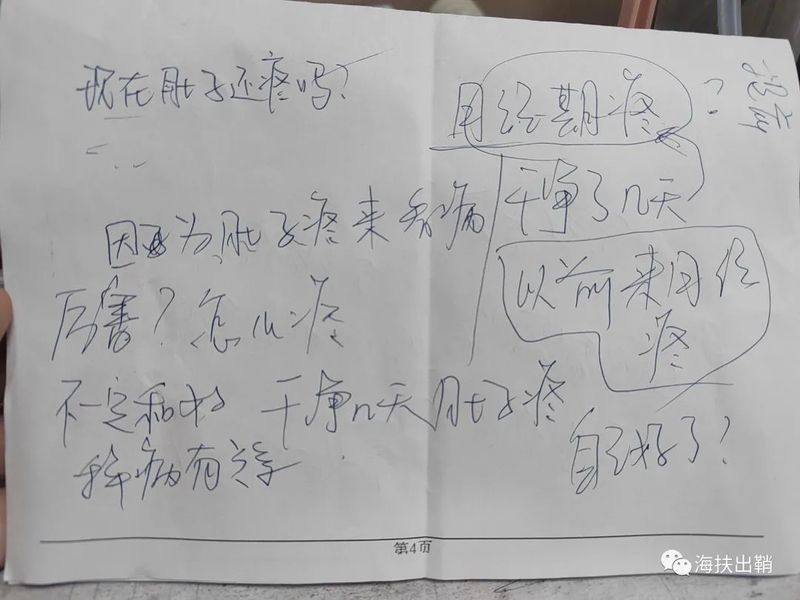 现在肚子还疼吗？
因为肚子疼来看病
厉害？怎么疼
不一定和
干净几天肚子疼
种病有关
月经期疼
？
提前
干净了几天
以前来月经
疼
自己好了？
第4页
海扶出鞘